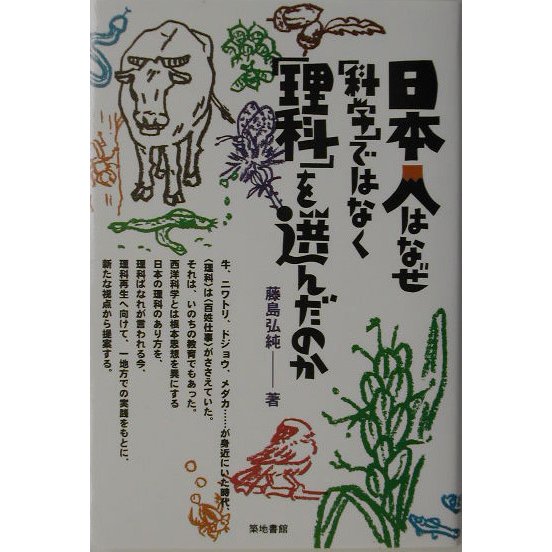 日本人はなぜ
「科学」ではなく
「理科」を選んだのか
藤島弘純――著
牛、ニワトリ、ドジョウ、メダカ……が身近にいた時代、
〈理科〉は〈百姓仕事〉がささえていた。
それは、いのちの教育でもあった。
西洋科学とは根本思想を異にする
日本の理科のあり方を、
理科ばなれが言われる今、
理科再生へ向けて、一地方での実践をもとに、
新たな視点から提案する。
築地書館